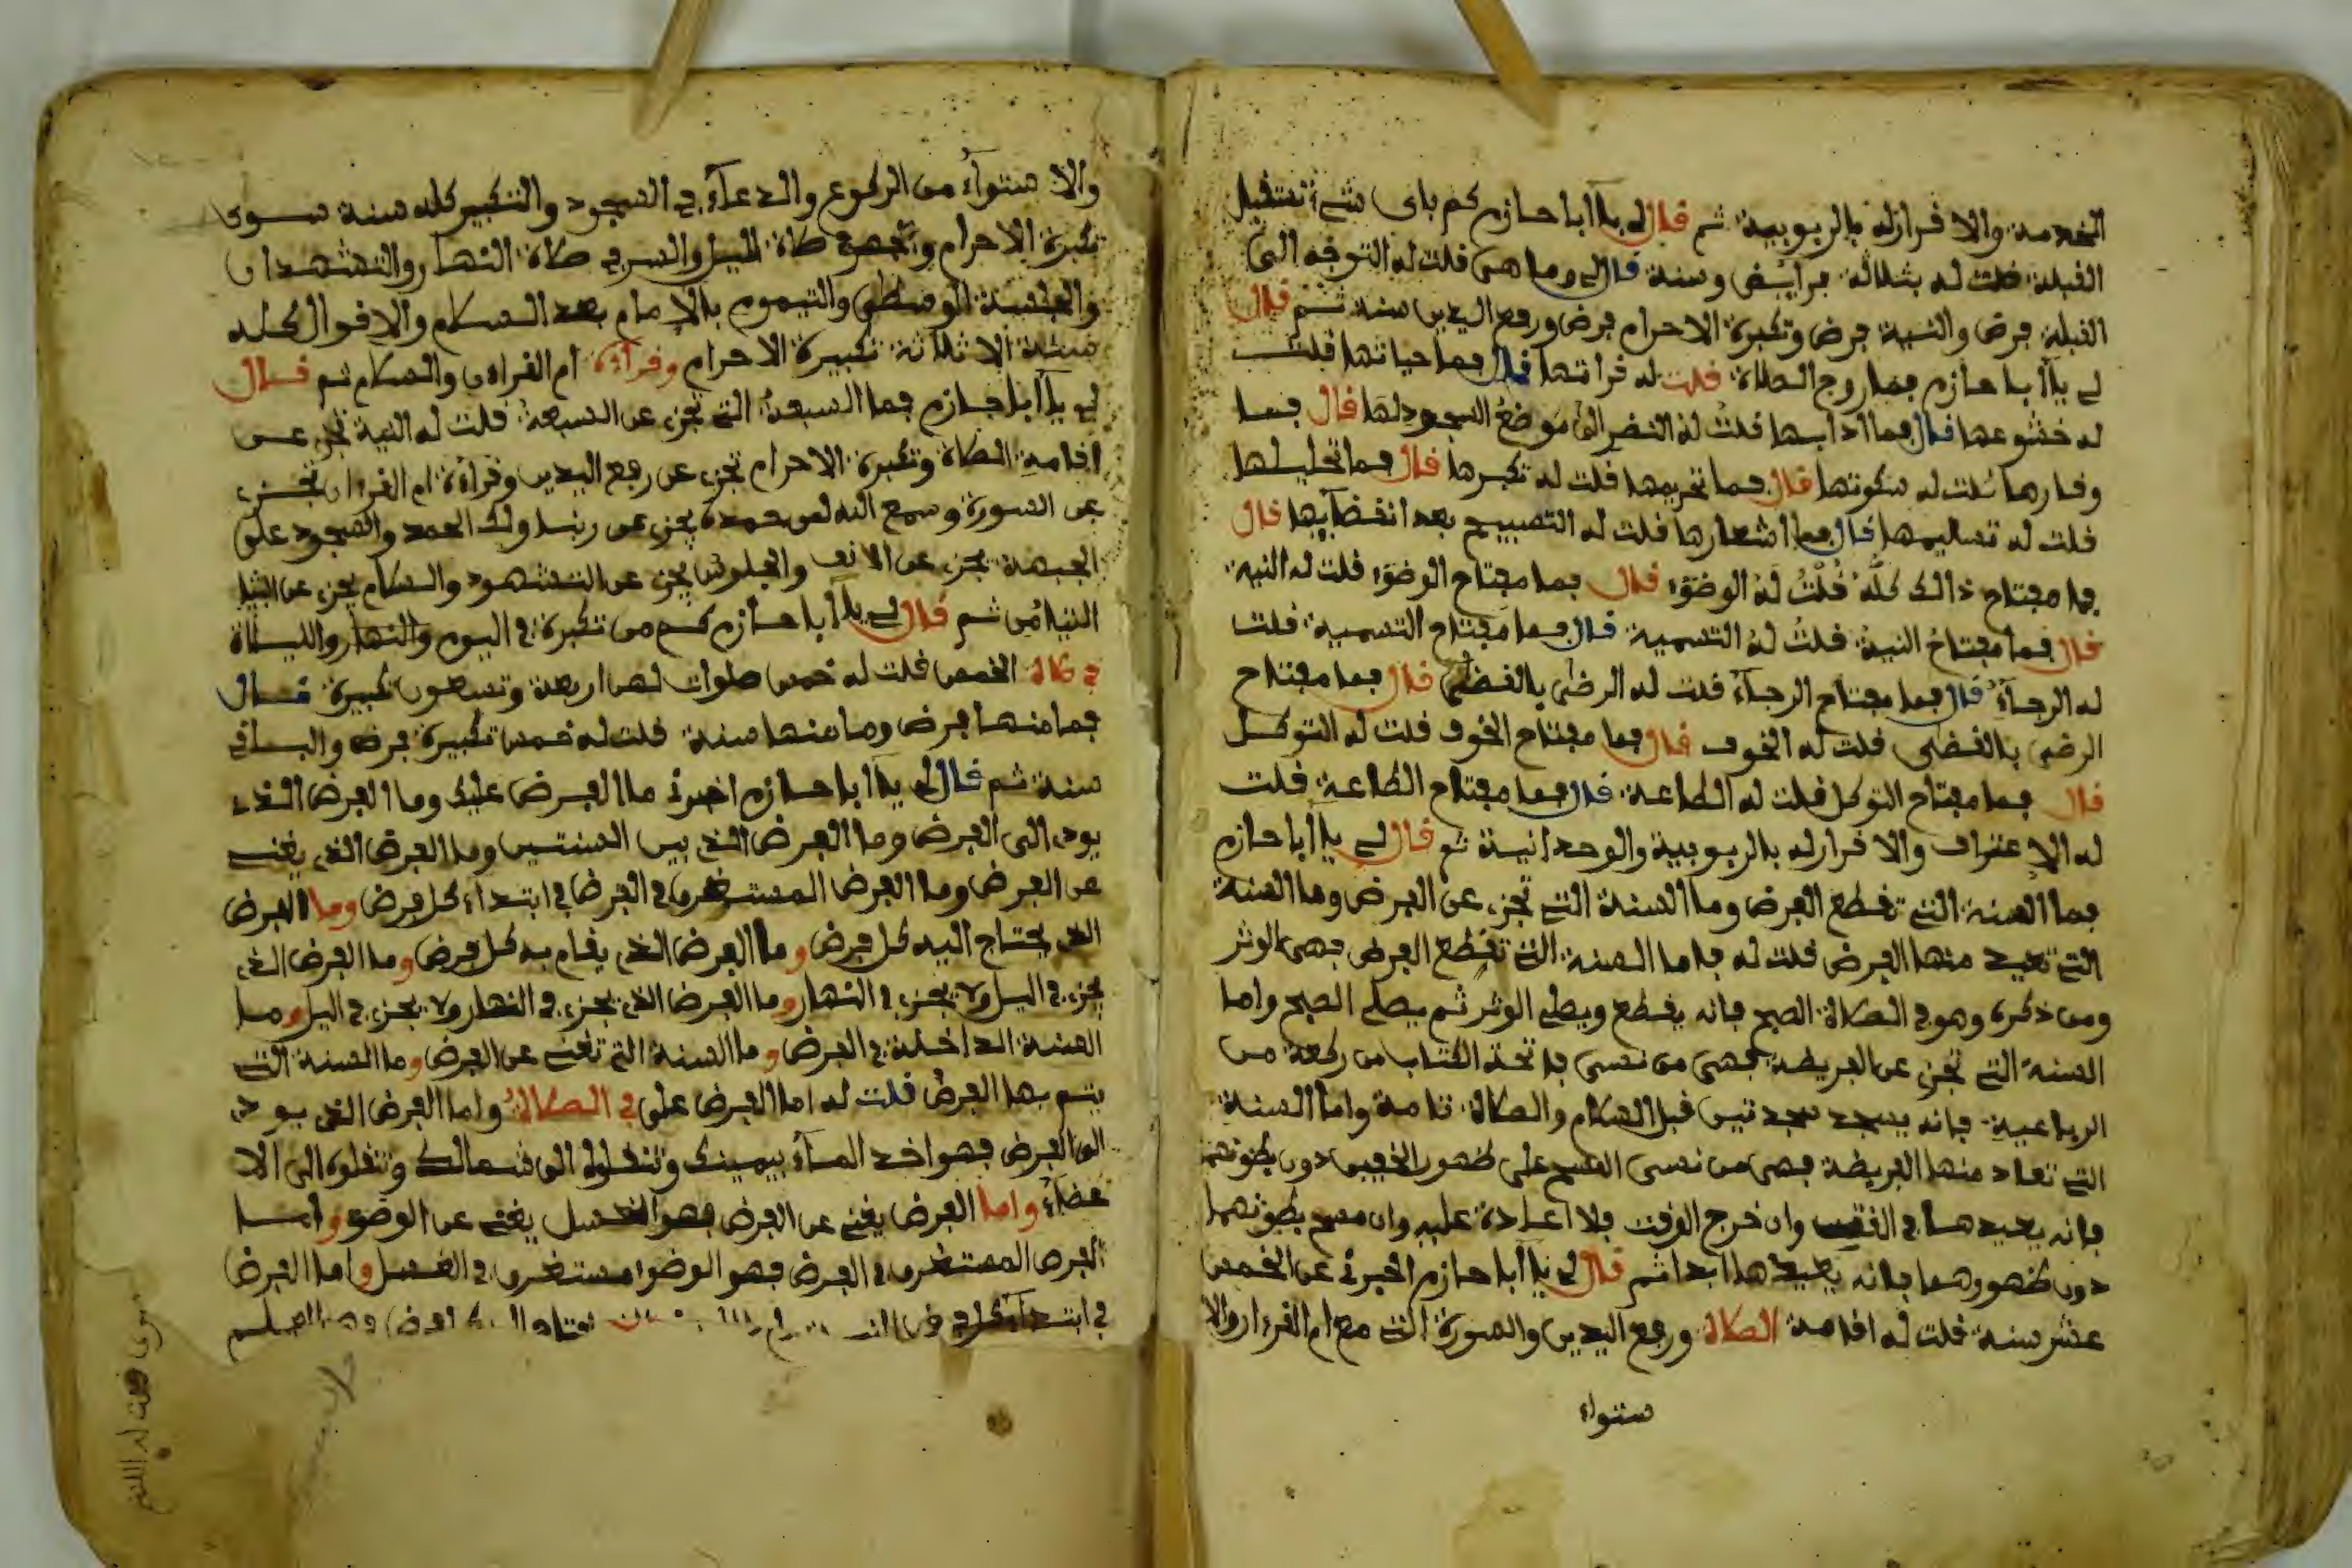 الخدمة والاقرار له بالربوبية ثم قال لي يا أبا حازم كم باي شيء تستقبل
القبلة فلت له بثلاثة فرائض وسنة قال لي وما هي فلت له التوجه الى
القبلة فرض والنية فرض وتكبرة الاحرام فرض ورفع اليدين سنة ثم قال
لي يا أبا حازم فما روح الصلاة فلت له قراتها قال فما حياتها فلت
له خشوعها قال فما ادابها فلت له النضر الى موضع السجود لها قال فما
وفارها فلت له سكونها قال فما تحريمها فلت له تكبرها قال فما تحليلها
فلت له تسليمها قال فما اشعارها فلت له التسبيح بعد انفضايها قال
فما مفتاح ذالك كله فلت له الوضوء قال فما مفتاح الوضوء فلت له النية
قال فما مفتاح النية فلت له التسمية قال فما مفتاح التسمية فلت
له الرجاء قال فما مفتاح الرجاء فلت له الرضى بالفضى قال فما مفتاح
الرضى بالفضى فلت له الخوف قال فما مفتاح الخوف فلت له التوكل
قال فما مفتاح التوكل فلت له الطاعة قال فما مفتاح الطاعة فلت
له الاعتراف والاقرار له بالربوبية والوحدانية ثم قال لي يا أبا حازم
فما السنة التي تفطع الفرض وما السنة التي تجزي عن الفرض وما السنة
التي تعيد منها الفرض فلت له فاما السنة التي تفطع الفرض فهي الوتر
ومن ذكره وهو في الصلاة الصبح فانه يفطع ويصلي الوتر ثم يصلي الصبح واما
السنة التي تجزي عن الفريضة فهي من نسي فاتحة الكتاب من ركعة من
الرباعية فانه يسجد سجدتين فبل السلام والصلاة تامة واما السنة
التي تعاد منها الفريضة فهي من نسي المسح على ظهور الخفين دون بطونهما
فانه يعيدها في الوقت وان خرج الوقت فلا اعادة عليه وان مسح بطونهما
دون ظهورهما فانه يعيدها ابدا ثم قال لي يا أبا حازم اخبرني عن الخمس
عشر سنة فلت له اقامة الصلاة ورفع اليدين والسورة التي مع ام القرءان والا
ستواء
والا ستواء من الركوع والدعاء في السجود والتكبير كله سنة سوى
تكبرة الاحرام والجهر في صلاة الليل والسر في صلاة النهار والتشهدان
والجلسة الوسطى والتيموم بالامام بعد السلام والاقوال كله
سنة الا ثلاثة تكبيرة الاحرام وقراءة ام القراءن والسلام ثم قال
لي يا أبا حازم فما السبعة التي تجزي عن السبعة فلت له النية تجزي عن
اقامة الصلاة وتكبرة الاحرام تجزي عن رفع اليدين وقراءة ام القرءان تجزي
عن السورة وسمع الله لمن حمده يجزي عن ربنا ولك الحمد والسجود على
الجبهة يجزي عن الانف والجلوس يجزي عن التشهود والسلام يجزي عن
التيامن ثم قال لي يا أبا حازم كم من تكبرة في اليوم والنهار والليلة
في صلاة الخمس فلت له خمس صلوات لهن اربعة وتسعون تكبيرة قال
فما منها فرض وما منها سنة فلت له خمس تكبيرة فرض والباقي
سنة ثم قال لي يا أبا حازم اخبرني ما الفرض عليك وما الفرض الذي
يودي الى الفرض وما الفرض الذي بين السنتين وما الفرض الذي يغني
عن الفرض وما الفرض المستغرق في الفرض في ابتداء كل فرض وما الفرض
الذي يحتاج اليه كل فرض وما الفرض الذي يقام به كل فرض وما الفرض الذي
يجزي في اليل ولا يجزي في النهار وما الفرض الذي يجزي في النهار ولا يجزي في اليل وما
السنة الداخلة في الفرض وما السنة التي تغني عن الفرض وما السنة التي
يتم بها الفرض فلت له اما الفرض علي في الصلاة واما الفرض الذي يودي
الى الفرض فهو اخذ الماء بيمينك وتنفلوله الى شمالك وتنفلوه الى الا
عضاء واما الفرض يغني عن الفرض فهو الغسل يغني عن الوضوء واما
الفرض المستغرق في الفرض فهو الوضوء مستغرق في الغسل واما الفرض
في ابتداء كل
سوى فلت له